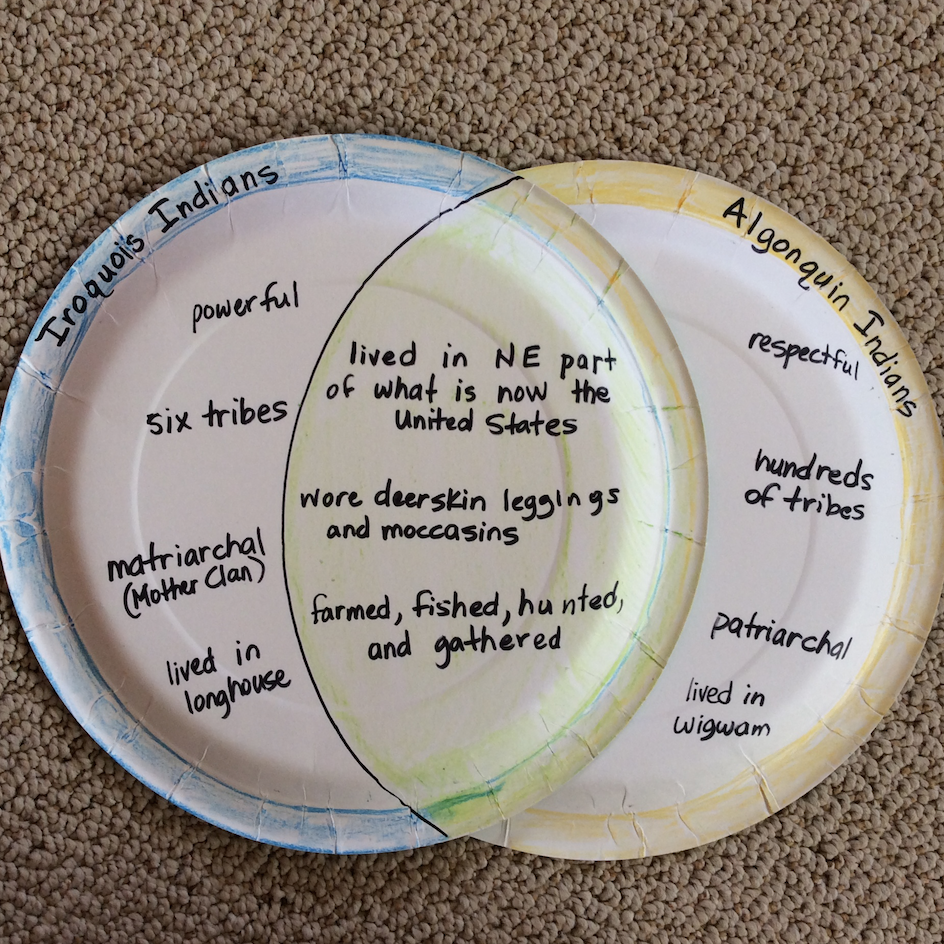 Iroquois Indians
powerful
six tribes
matriarchal
(Mother Clan)
lived in
longhouse
lived in NE part
of what is now the
United States
wore deerskin leggings
and moccasins
farmed, fished, hunted,
and gathered
Algonquin Indians
respectful
hundreds
of tribes
patriarchal
lived in
wigwam